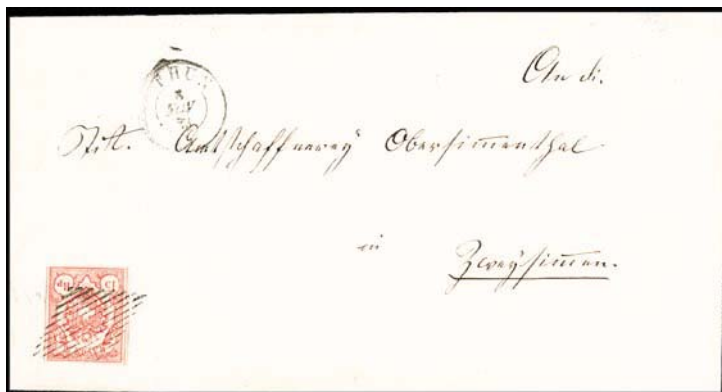 THUN
An die.
Titt. Amtschaffnerey Obersimmenthal
in
Zweysimmen.
15 Rp